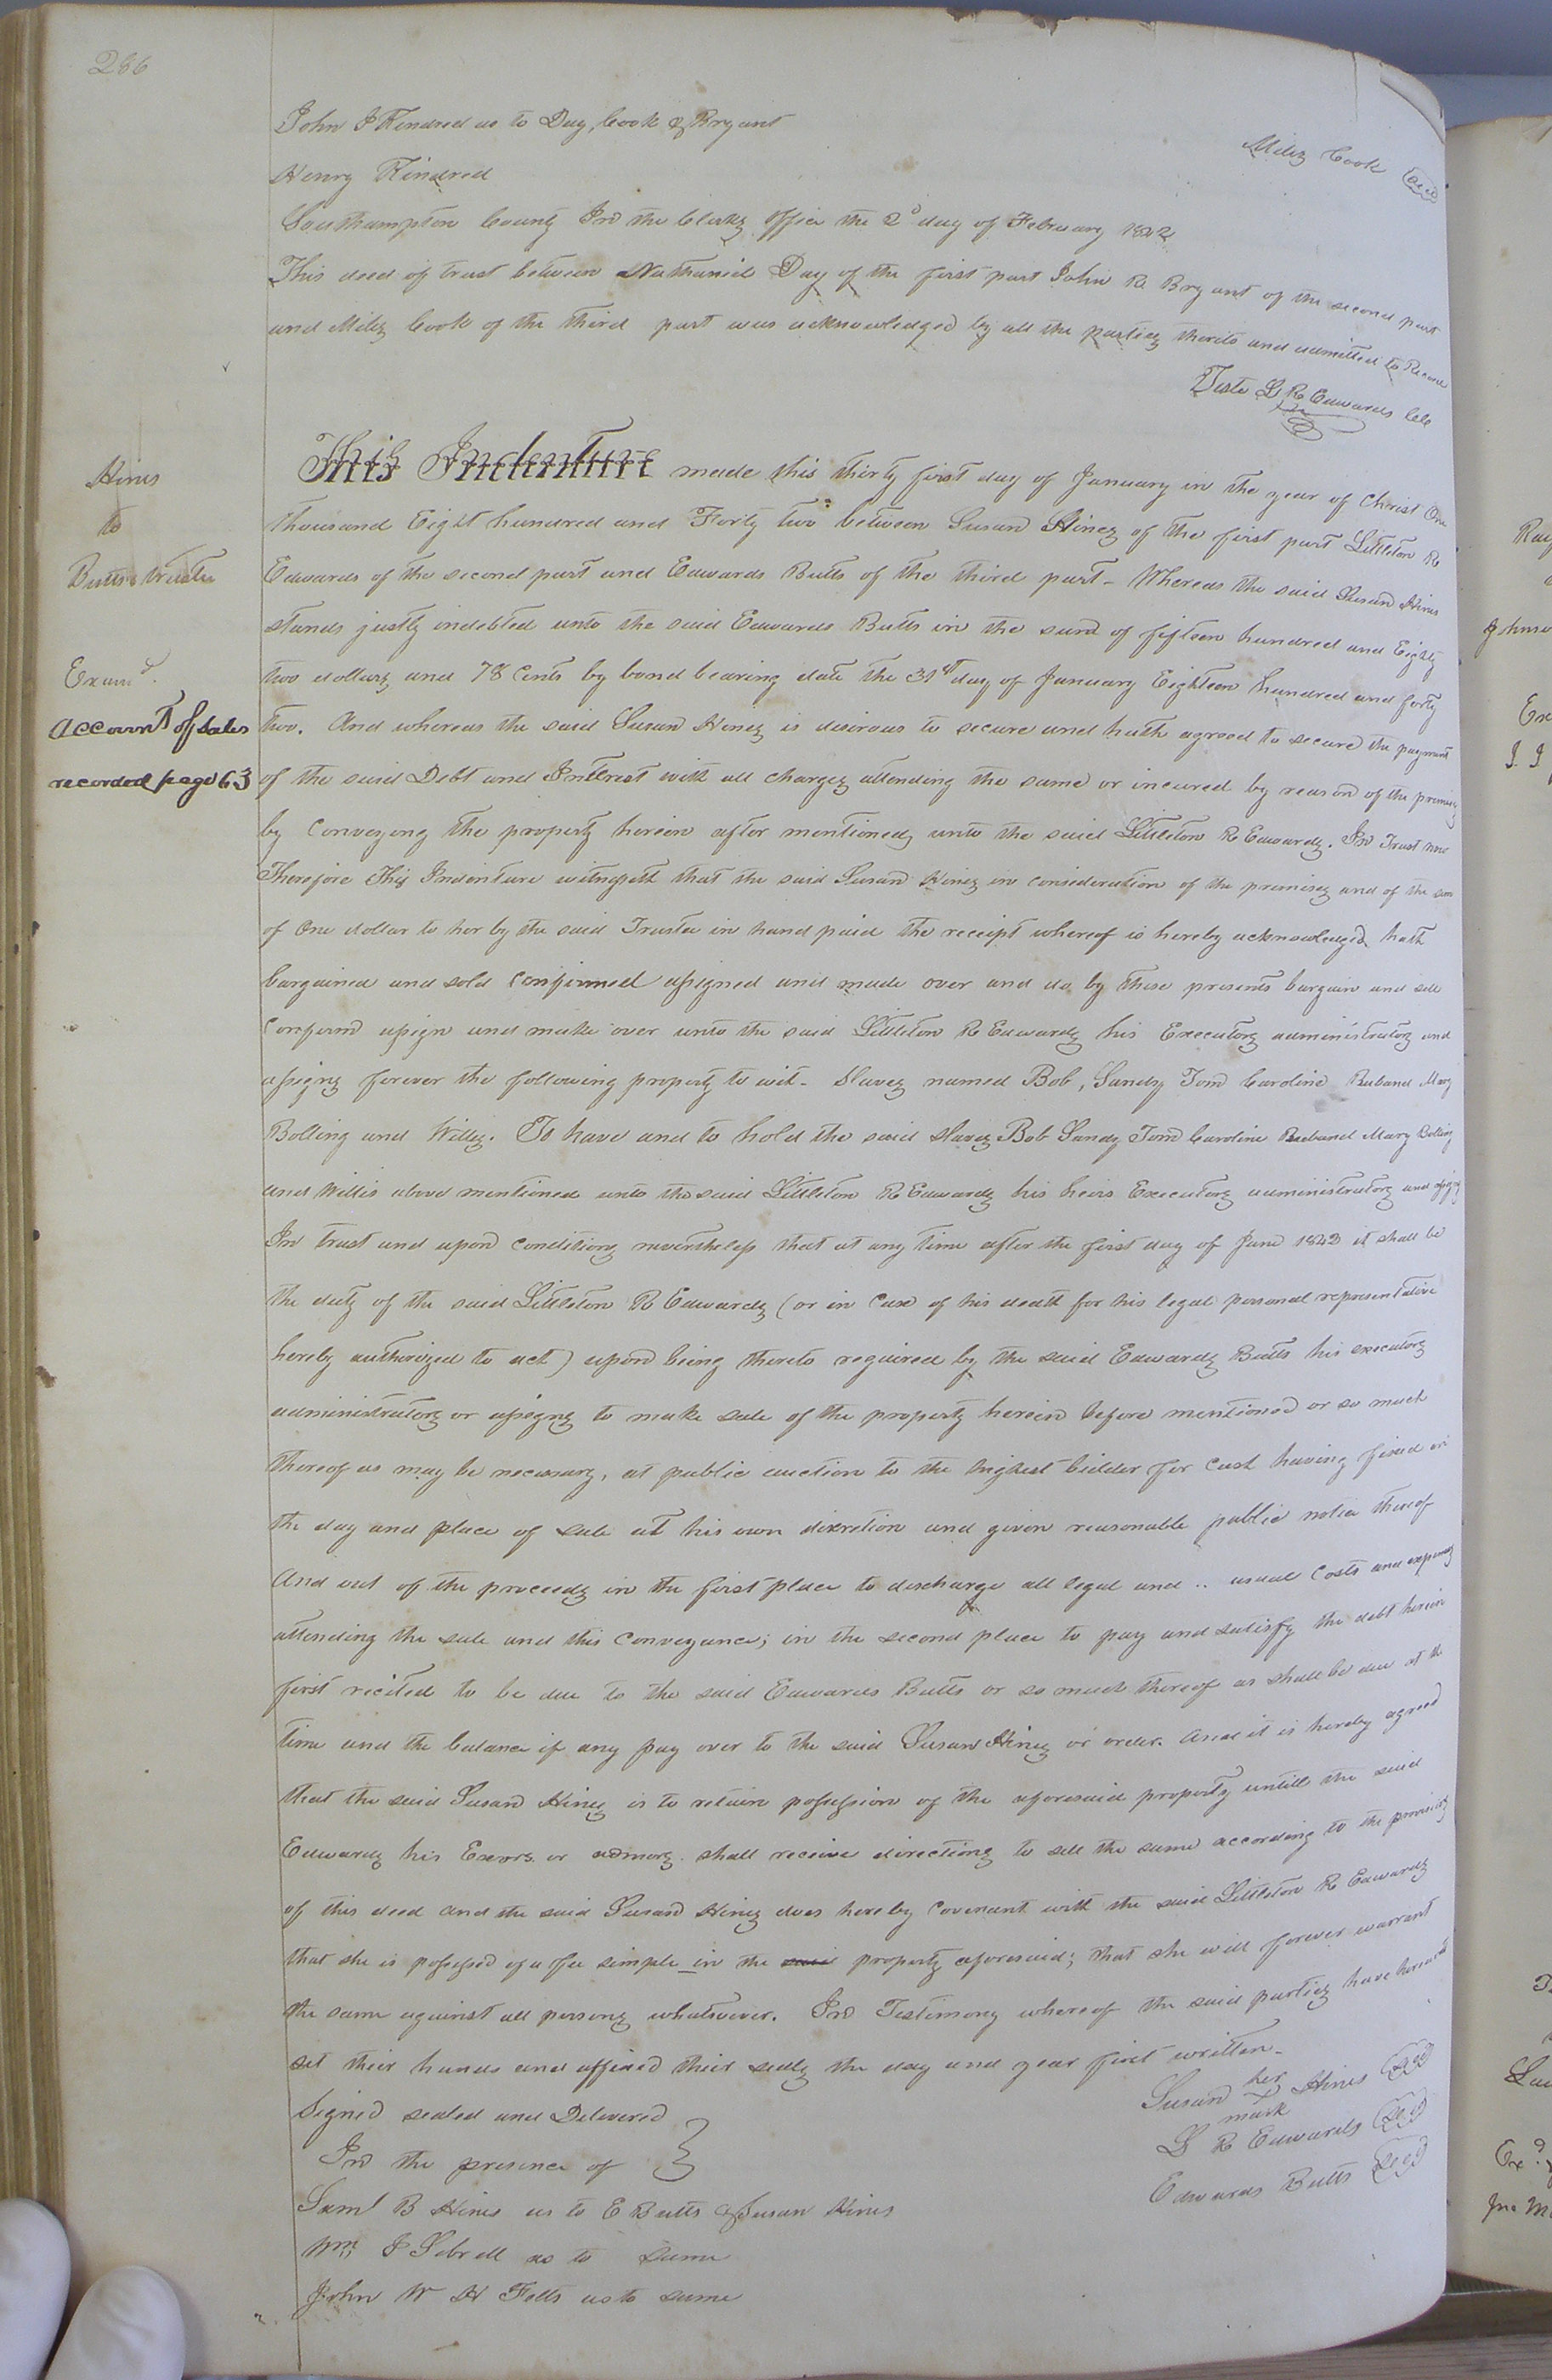 286
John J Kindred as to Day, Cook & Bryant
Miles Cook seal
Henry Kindred
Southampton County In the Clerks office the 2d day of February 1842
This deed of trust between Nathaniel Day of the first part John R Bryant of the second part
and Miles Cook of the third part was acknowledged by all the parties thereto and admitted to Record
Teste L R Edwards Clk
Hines
to
Butts trustee
Examd.
Account of Sales
recorded page 63
This Indenture made this thirty first day of January in the year of Christ One
thousand Eight hundred and Forty two between Susan Hines of the first part Littleton R
Edwards of the second part and Edwards Butts of the third part - Whereas the said Susan Hines
stands justly indebted unto the said Edwards Butts in the sum of fifteen hundred and Eighty
two dollars and 78 Cents by bond bearing date the 31st day of January Eighteen hundred and forty
two. And whereas the said Susan Hines is desirous to secure and hath agreed to secure the payment
of the said Debt and Interest with all charges attending the same or incured by reason of the premises
by Conveying the property herein after mentioned, unto the said Littleton R Edwards. In Trust now
Therefore This Indenture witnesseth that the said Susan Hines in consideration of the premises and of the sum
of One dollar to her by the said Trustee in hand paid the receipt whereof is hereby acknowledged hath
bargained and sold Confirmed assigned and made over and do by these presents bargain and sell
Confirm assign and make over unto the said Littleton R Edwards his Executors administrators and
assigns forever the following property to wit - Slaves named Bob, Sandy Tom Caroline Ruband Mary
Bolling and Willis. To have and to hold the said slaves Bob Sandy Tom Caroline Ruband Mary Bolling
and Willis above mentioned unto the said Littleton R Edwards his heirs Executors administrators and assigns
In trust and upon conditions nevertheless that at any time after the first day of June 1843 it shall be
the duty of the said Littleton R Edwards (or in Case of his death for his legal personal representative
hereby authorized to act) upon being thereto required by the said Edwards Butts his executors
administrators or assigns to make sale of the property herein before mentioned or so much
thereof as may be necessary, at public auction to the highest bidder for Cash having fixed on
the day and place of sale at his own discretion and given reasonable public notice thereof
And out of the proceeds in the first place to discharge all legal and .. usual Costs and expenses
attending the sale and this Conveyance; in the second place to pay and satisfy the debt herein
first recited to be due to the said Edwards Butts or so much thereof as shall be due at the
time and the balance if any pay over to the said Susan Hines or order. And it is hereby agreed
that the said Susan Hines is to retain possession of the aforesaid property untill the said
Edwards his Exors. or admors. shall receive directions to sell the same according to the provisions
of this deed and the said Susan Hines does hereby Covenant with the said Littleton R Edwards
that she is possessed of a fee simple in the said property aforesaid; that she will forever warrant
the same against all persons whatsoever. In Testimony whereof the said parties have hereunto
set their hands and affixed their seals the day and year first written -
Signed sealed and Delivered
In the presence of
Susan her mark Hines seal
L R Edwards seal
Edwards Butts seal
Saml B Hines as to E Butts & Susan Hines
Wm J Sebrell as to same
John W H Felts as to same